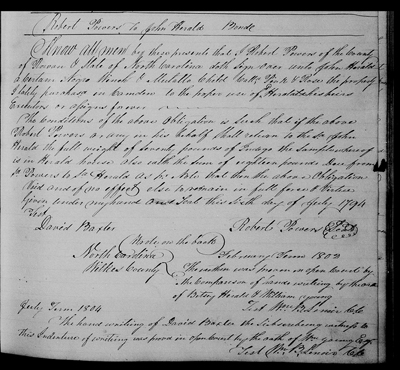 Robert Powers to John Herald Bond
Know all men by these presents that I Robert Powers of the County
of Rowan & State of North Carolina doth sign over unto John Herald
a Certain Negro Wench & Mulatto Child Cut & the property
I lately purchase in Camden to the proper use of
Executors or assigns forever
The Conditions of the above Obligation is Such that if the above
Robert Powers or any in his behalf Shall return to the sd John
Herald the full weight of Seventy pounds of the Sample whereof
is in Heralds house also with the sum of eighteen pounds Due from
sd Powers to sd Herald as by Note that then the above Obligation
Void and of no effect else to remain in full force & Virtue
Given under my hand and Seal this Sixth day of July 1794
Test
David Baxter Robert Powers Seal
Wrote on the back
North Carolina February Term 1802
Wilkes County The within was proven in open Court by
the Comparison of hands writing by the oath
of Betsy Herald & William Young
Test Wm B Lenoir
July Term 1804
The hand writing of David Baxter the Subscribing witness to
this Indenture of writing was proved in open Court by the oath of Wm Young Esqr
Test Wm B Lenoir